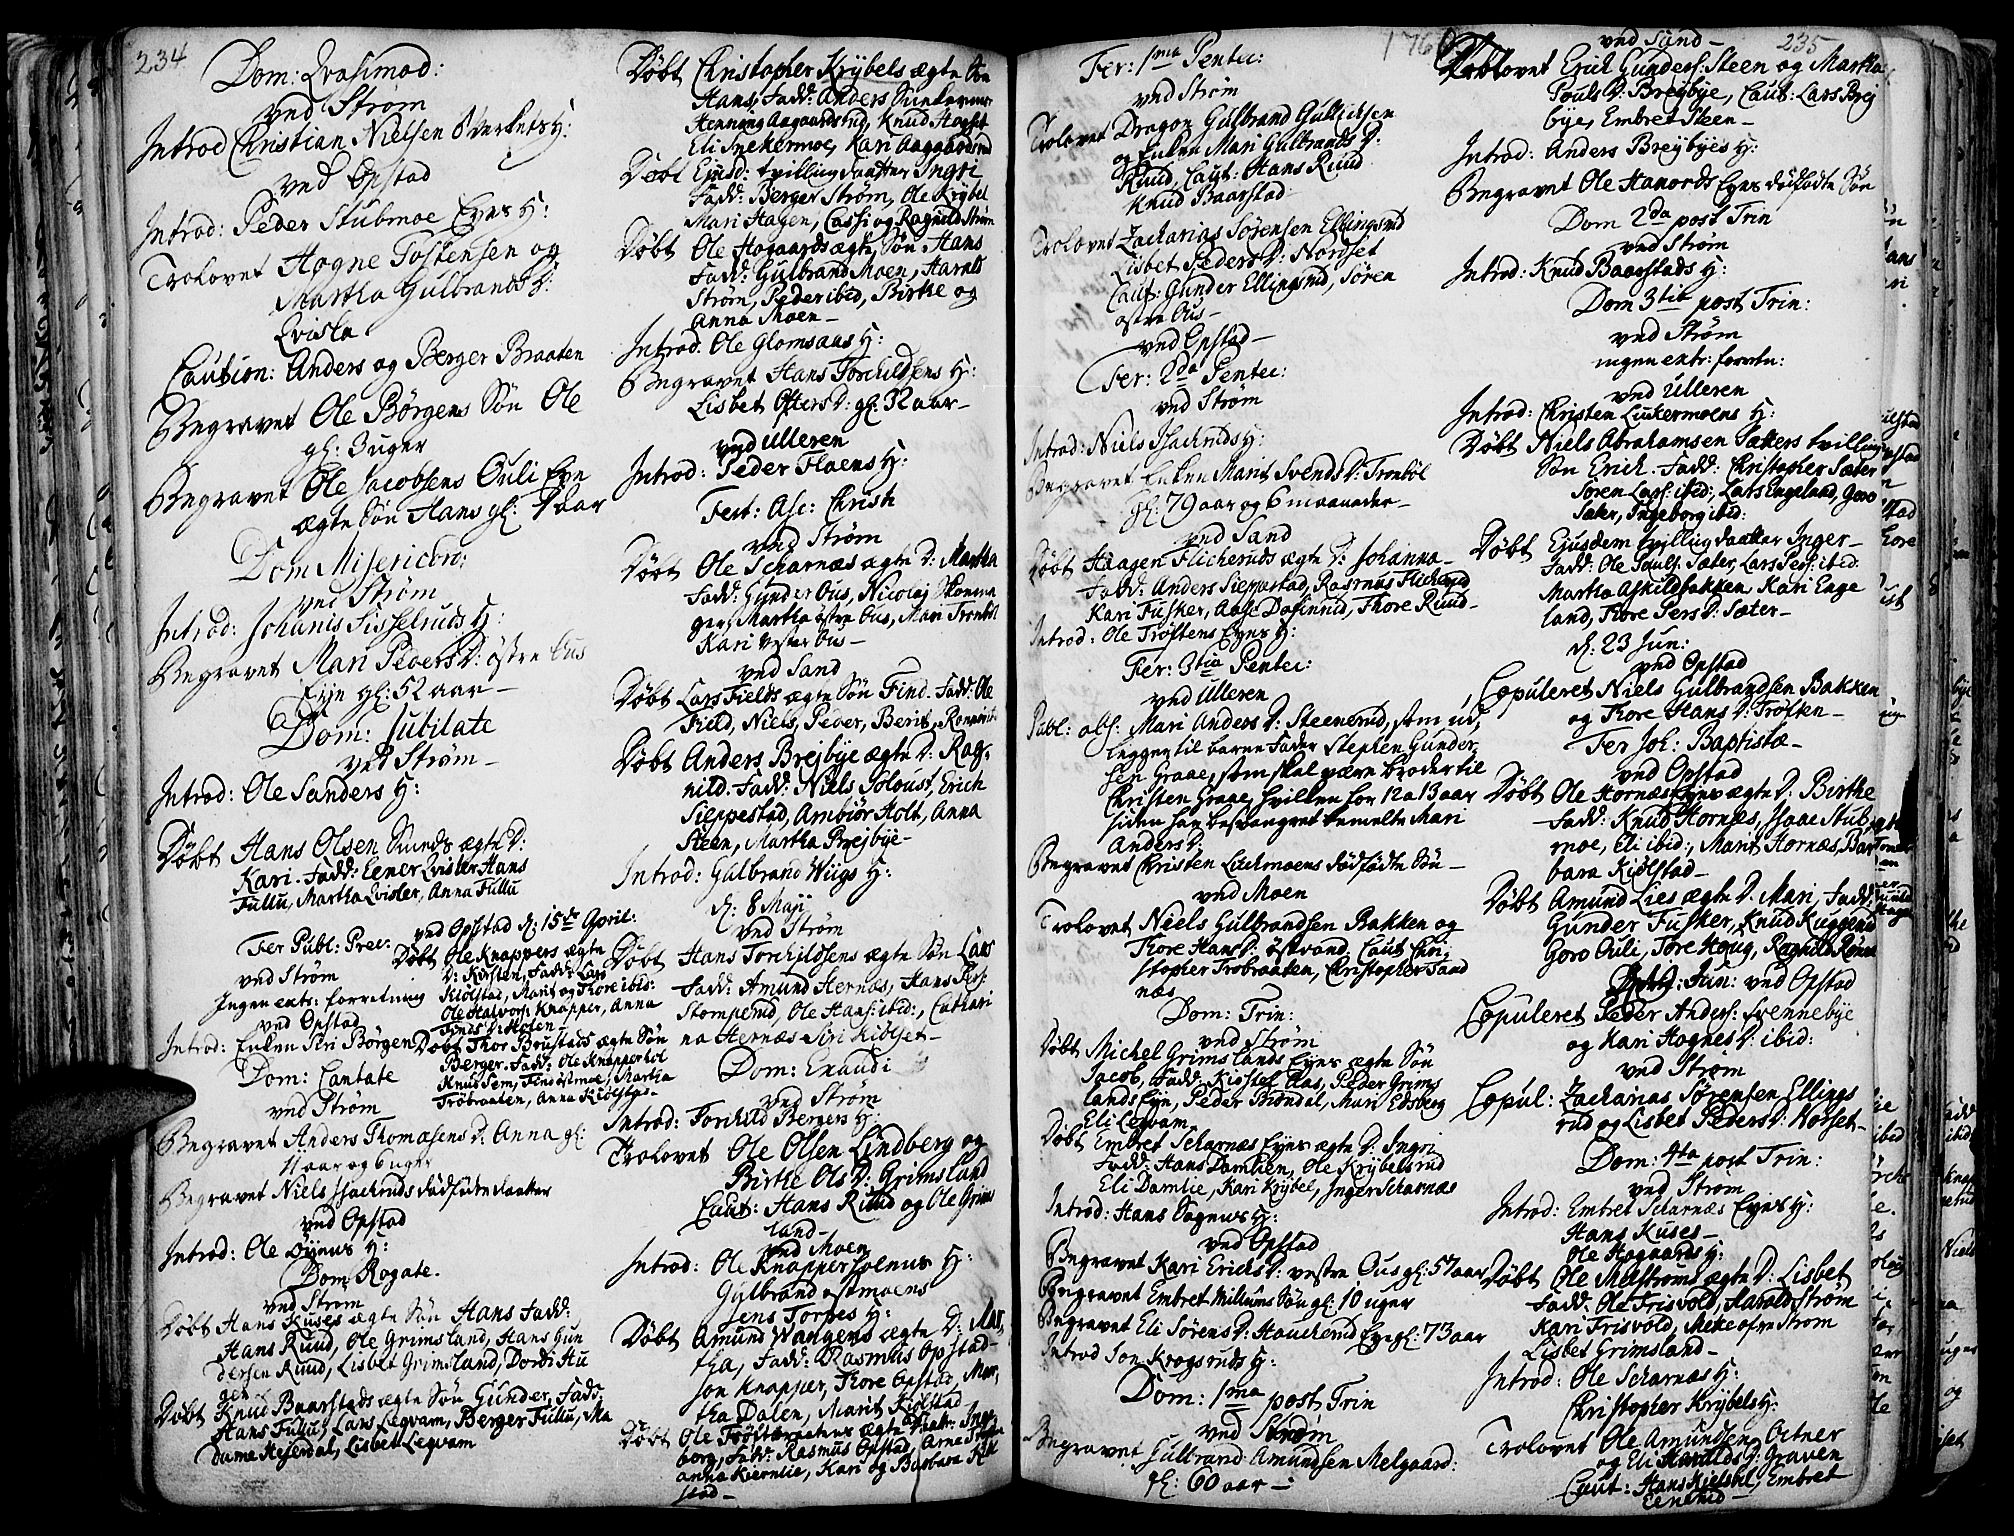 234
Dom: Qvasimod:
ved Strøm
Introd Christian Nielsen Øverkets H:
ved Opstad
Introd: Peder Stubmoe Eyes H:
Trolovet Hogne Tostensen og
Martha Gulbrands D:
Qvisla
Caution: Anders og Berger Braaten
Begravet Ole Børgens Søn Ole
gl: 3 uger
Begravet Ole Jacobsens Ouli Eye
ægte Søn Hans gl: aar
Dom Misericord:
ved Strøm
Introd: Johanis Sisselruds H:
Begravet Mari Peders D: østre Ous
Eye gl: 52 aar
Dom: Jubilate
ved Strøm
Introd: Ole Sanders H:
Døbt Hans Olsen Sunds ægte D:
Kari. Fadd: Eener Qvisler Hans
Fullu, Martha Qvisler, Anna Fullu
Fer Publ: Prec:
ved Strøm
Ingen extr: forretning
ved Opstad
Introd: Enken Siri Børgen
ved Opstad d. 15de April:
Døbt Ole Knappers ægte
D: Kirsten, Fadd: Lars
Kiølstad, Marit og Thore ibid:
Ole Halvors: Knapper, Anna
Finds D: Holen
Døbt Thor Brustads ægte Søn
Berger. Fadd: Ole Knapperhol
Knud Sem, Find Østmoe, Martha
Trøbraaten, Anna Kiølstad
Dom: Cantate
ved Strøm
Begravet Anders Thomasens D: Anna gl:
11 aar og 6 uger
Begravet Niels Isachruds dødfødte daatter
ved Opstad
Introd: Ole Øynes H:
Dom: Rogate.
ved Strøm
Døbt Hans Kuses ægte Søn Hans Fadd:
Hans Ruud, Ole Grimsland, Hans Gun
dersen Ruud, Lisbet Grimsland, Dordi Hu
gen
Døbt Knud Baarstads ægte Søn Gunder, Fadd:
Hans Fullu, Lars Legvam, Berger Fullu, Ma
Dame Heserdal, Lisbet Legvam
Døbt Christopher Krybels ægte Søn
Hans, Fadd: Anders Snekermoe
Henning Aagaardsrud, Knud Hogset
Eli Snekermoe, Kari Aagaardsrud
Døbt Ejusd: tvilling daatter Ingri
Fadd: Berger Strøm, Ole Krybel
Mari Hagen, Cassi og Ragnild Strøm
Døbt Ole Hogaards ægte Søn Hans
Fadd: Gulbrand Moen, Harald
Strøm, Peder ibid, Birthe og
Anna Moen
Introd: Ole Glomsaas H:
Begravet Hans Torchildsens H:
Lisbet Ofters D: gl: 32 aar
ved Ulleren
Introd: Peder Floens H:
Fest: Asc: Christi
ved Strøm
Døbt Ole Scharnæs ægte D: Martha
Fadd: Gunder Ous, Nicolaj Skomma
ger, Martha østre Ous, Mari Trombøl
Kari vester Ous
ved Sand
Døbt Lars Fields ægte Søn Find. Fadd: Ole
Field, Niels, Peder, Berit,
Døbt Anders Brejbye ægte D: Rag
nild. Fadd: Niels Soloust, Erich
Sieppestad, Ambiør Holt, Anna
Steen, Martha Brejbye
Introd: Gulbrand Wiigs H:
d. 8 Maji
ved Strøm
Døbt Hans Torchildsens ægte Søn Lars
Fadd: Amund Hernæs, Hans Pers:
Stomperud, Ole Hans: ibid:, Cathari
na Hernæs Siri Kiølset
Dom: Exaudi
ved Strøm
Introd: Torchild Bergers H:
Trolovet Ole Olsen Lindberg og
Birthe Ols D: Grimsland
Caut: Hans Ruud og Ole Grims
land
ved Moen
Introd: Ole Knapperholens H:
Gylbrand østmoens
Jens Torpes H:
Døbt Amund Wangens ægte D: Mar
tha, Fadd: Rasmus Opstad
Jon Knapper, Thore Opstad, Mar
tha Dalen, Marit Kiølstad
Døbt Ole ægte Daatt: Inge
borg, Fadd: Rasmus Opstad, Arne
Anna Kiernlie, Kari og Barbara Kiøl
stad
1760
235
Fer: 1ma Pentec:
ved Strøm
Trolovet Dragon Gulbrand Gulbrandsen
og Enken Mari Gulbrands D:
Ruud, Caut: Hans Ruud
Knud Baarstad
Trolovet Zacharias Sørensen Ellingsrud
Lisbet Peders D: Norset
Caut: Gunder Ellingsrud, Søren
østre Ous
ved Opstad
Fer: 2da Pentec:
ved Strøm
Introd: Niels Isachruds H:
Begravet Enken Marit Svends D: Trombøl
gl: 79 aar og 6 maaneder
ved Sand
Døbt Haagen Flicheruds ægte D: Johanna
Fadd: Anders Sieppestad, Rasmus Flicherud
Kari Fusker, Aase Dafinrud, Thore Ruud
Introd: Ole Trøftens Eyes H:
Fer: 3tia Pentec:
ved Ulleren
Publ: abs: Mari Anders D: Steenerud, som ud
legger til barne Fader Stephen Gunder
sen Graae, som skal være broder til
Christen Graae, hvilken for 12 a 13 aar
siden har besvangret bemelte Mari
Anders D:
Begravet Christen Lukmoens dødfødte Søn
ved Moen
Trolovet Niels Gulbrandsen Bakken og
Thore Hans D: østvand, Caut: Chri
stopher Trøbraaten, Christopher Sand
næs
Dom: Trin:
ved Strøm
Døbt Michel Grimslands Eyes ægte Søn
Jacob, Fadd. Kiøstel Aas, Peder Grims
lands Eye, Peder Brøndal, Mari Edsberg
Eli Legvam
Døbt Embret Scharnæs Eyes ægte D: Ingri
Fadd: Hans Damlien, Ole Krybelsrud
Eli Damlie, Kari Krybel, Inger Scharnæs
Introd: Hans Sagnes H:
ved Opstad
Begravet Kari Erichs D: vestre Ous gl: 57 aar
Begravet Embret Millums Søn gl: 10 uger
Begravet Eli Sørens D: Haucherud Eye gl: 73 aar
Introd Jon Krogsruds H:
Dom: 1ma post Trin
ved Strøm
Begravet Gulbrand Amundsen Melgaard:
gl: 60 aar
ved Sand
Trolovet Erich Gunders: Steen og Martha
Pouls D: Brejbye, Caut: Lars Brej
bye, Embret Steen
Introd: Anders Brejbyes H:
Begravet Ole Hanords Eyes dødfødte Søn
Dom 2da post Trin
ved Strøm
Introd: Knud Baarstads H:
Dom 3tia post Trin:
ved Strøm
ingen extr: forretn:
ved Ulleren
Introd: Christen Lukermoens H:
Døbt Niels Abrahamsen Sæters tvilling
Søn Erich. Fadd: Christopher Sæter
Søren Lars: ibid:, Lars Engeland, Goro
Sæter, Ingeborg ibid:
Døbt Ejusdem tvilling daatter Inger
Fadd: Ole Pouls: Sæter, Lars Peds: ibid:
Martha Askildsbakken, Kari Enge
land, Thore Pers D: Sæter
d. 23 Jun:
ved Opstad
Copuleret Niels Gulbrandsen Bakken
og Thore Hans D: Trøften
Fer Joh: Baptistæ
ved Opstad
Døbt Ole Hornæs Eyes ægte D: Birthe
Fadd: Knud Hornæs, Isaac Stub
moe, Eli ibid:, Marit Hornæs, Bar
bara Kiølstad
Døbt Amund Lies ægte D: Mari, Fadd:
Gunder Fusker, Knud Kuggerud
Goro Ouli, Tore Houg, Ragnild Rønes
Jun: ved Opstad
Copuleret Peder Anders: Svennebye
og Kari Hognes D: ibid:
ved Strøm
Copul: Zacharias Sørensen Ellings
rud og Lisbet Peders D: Norset
Dom: 4ta post Trin:
ved Strøm
Introd: Embret Scharnæs Eyes H:
Hans Kuses
Ole Hogaards H:
Døbt Ole Melstrøms ægte D: Lisbet
Fadd: Ole Frisvold, Harald Strøm
Kari Frisvold, Meke øfre Strøm
Lisbet Grimsland
Introd: Ole Scharnæs H:
Christopher Krybels H:
Trolovet Ole Amundsen Octner
og Eli Haralds D: Graven
Caut: Hans Kielsbøl, Embret
Eenerud